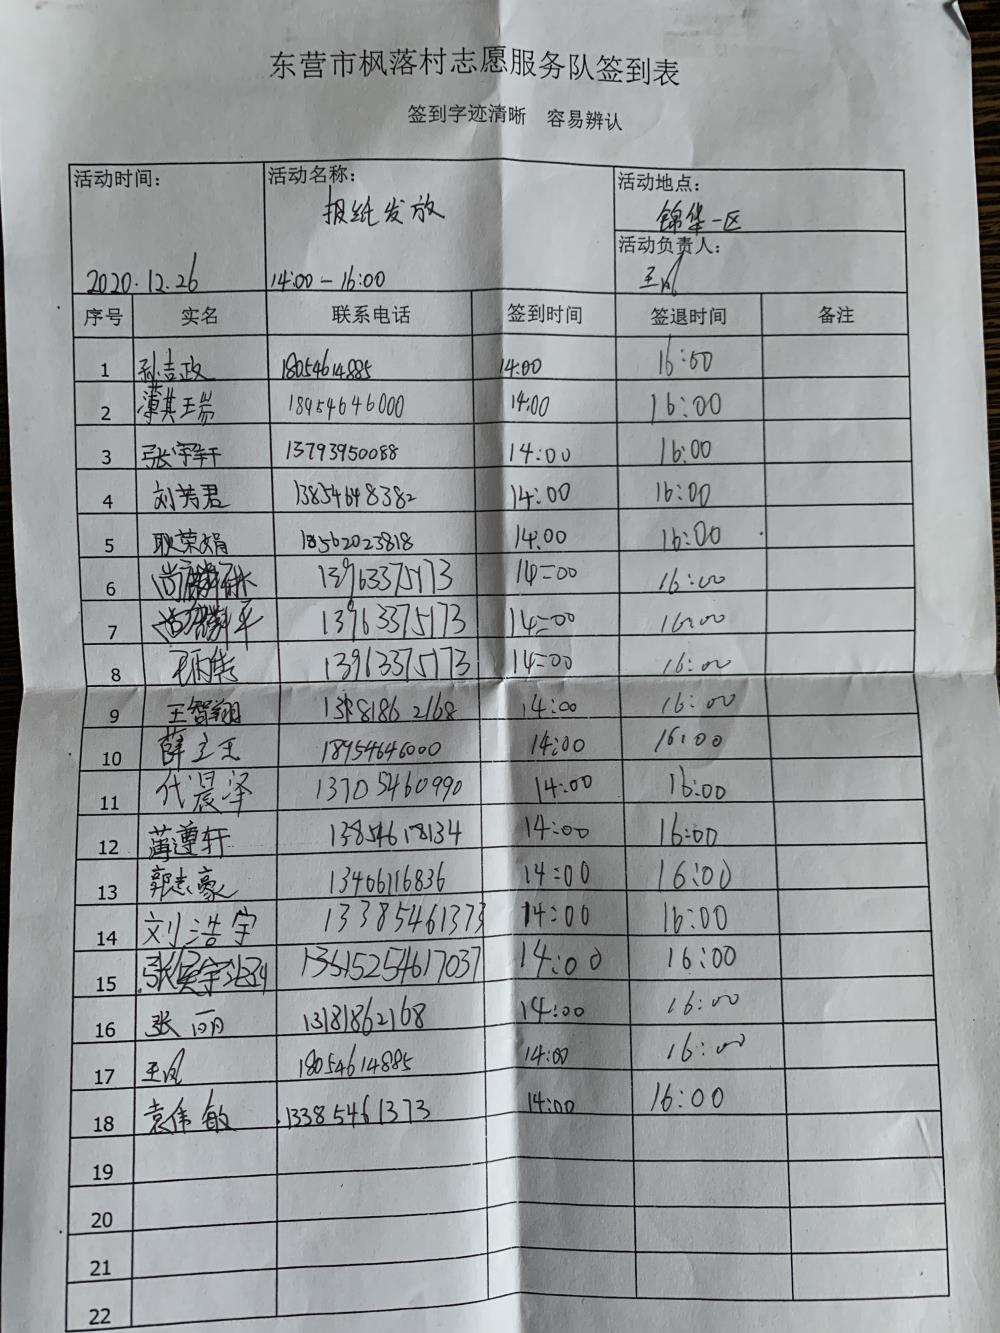 东营市枫落村志愿服务队签到表
签到字迹清晰 容易辨认
活动时间: 活动名称: 活动地点:
报纸发放 锦华一区
活动负责人:
2020.12.26 14:00-16:00 王凤
序号 实名 联系电话 签到时间 签退时间 备注
1 孙吉政 18054614885 14:00 16:00
2 薄其瑞 18954646000 14:00 16:00
3 张宇轩 13793950088 14:00 16:00
4 刘芳君 13854648382 14:00 16:00
5 耿荣娟 18562023818 14:00 16:00
6 13963375173 14=00 16:00
7 13963375173 14=00 16:00
8 13963375173 14=00 16:00
9 王智翔 13181862168 14:00 16:00
10 薛立王 18954646000 14:00 16:00
11 代晨泽 13705460990 14:00 16:00
12 薄遵轩 13854618134 14:00 16:00
13 郭志豪 13406116836 14:00 16:00
14 刘浩宇 13385461373 14:00 16:00
15 14:00 16:00
16 张丽 13181862168 14:00 16:00
17 王凤 18054614885 14:00 16:00
18 袁伟敏 13385461373 14:00 16:00
19
20
21
22